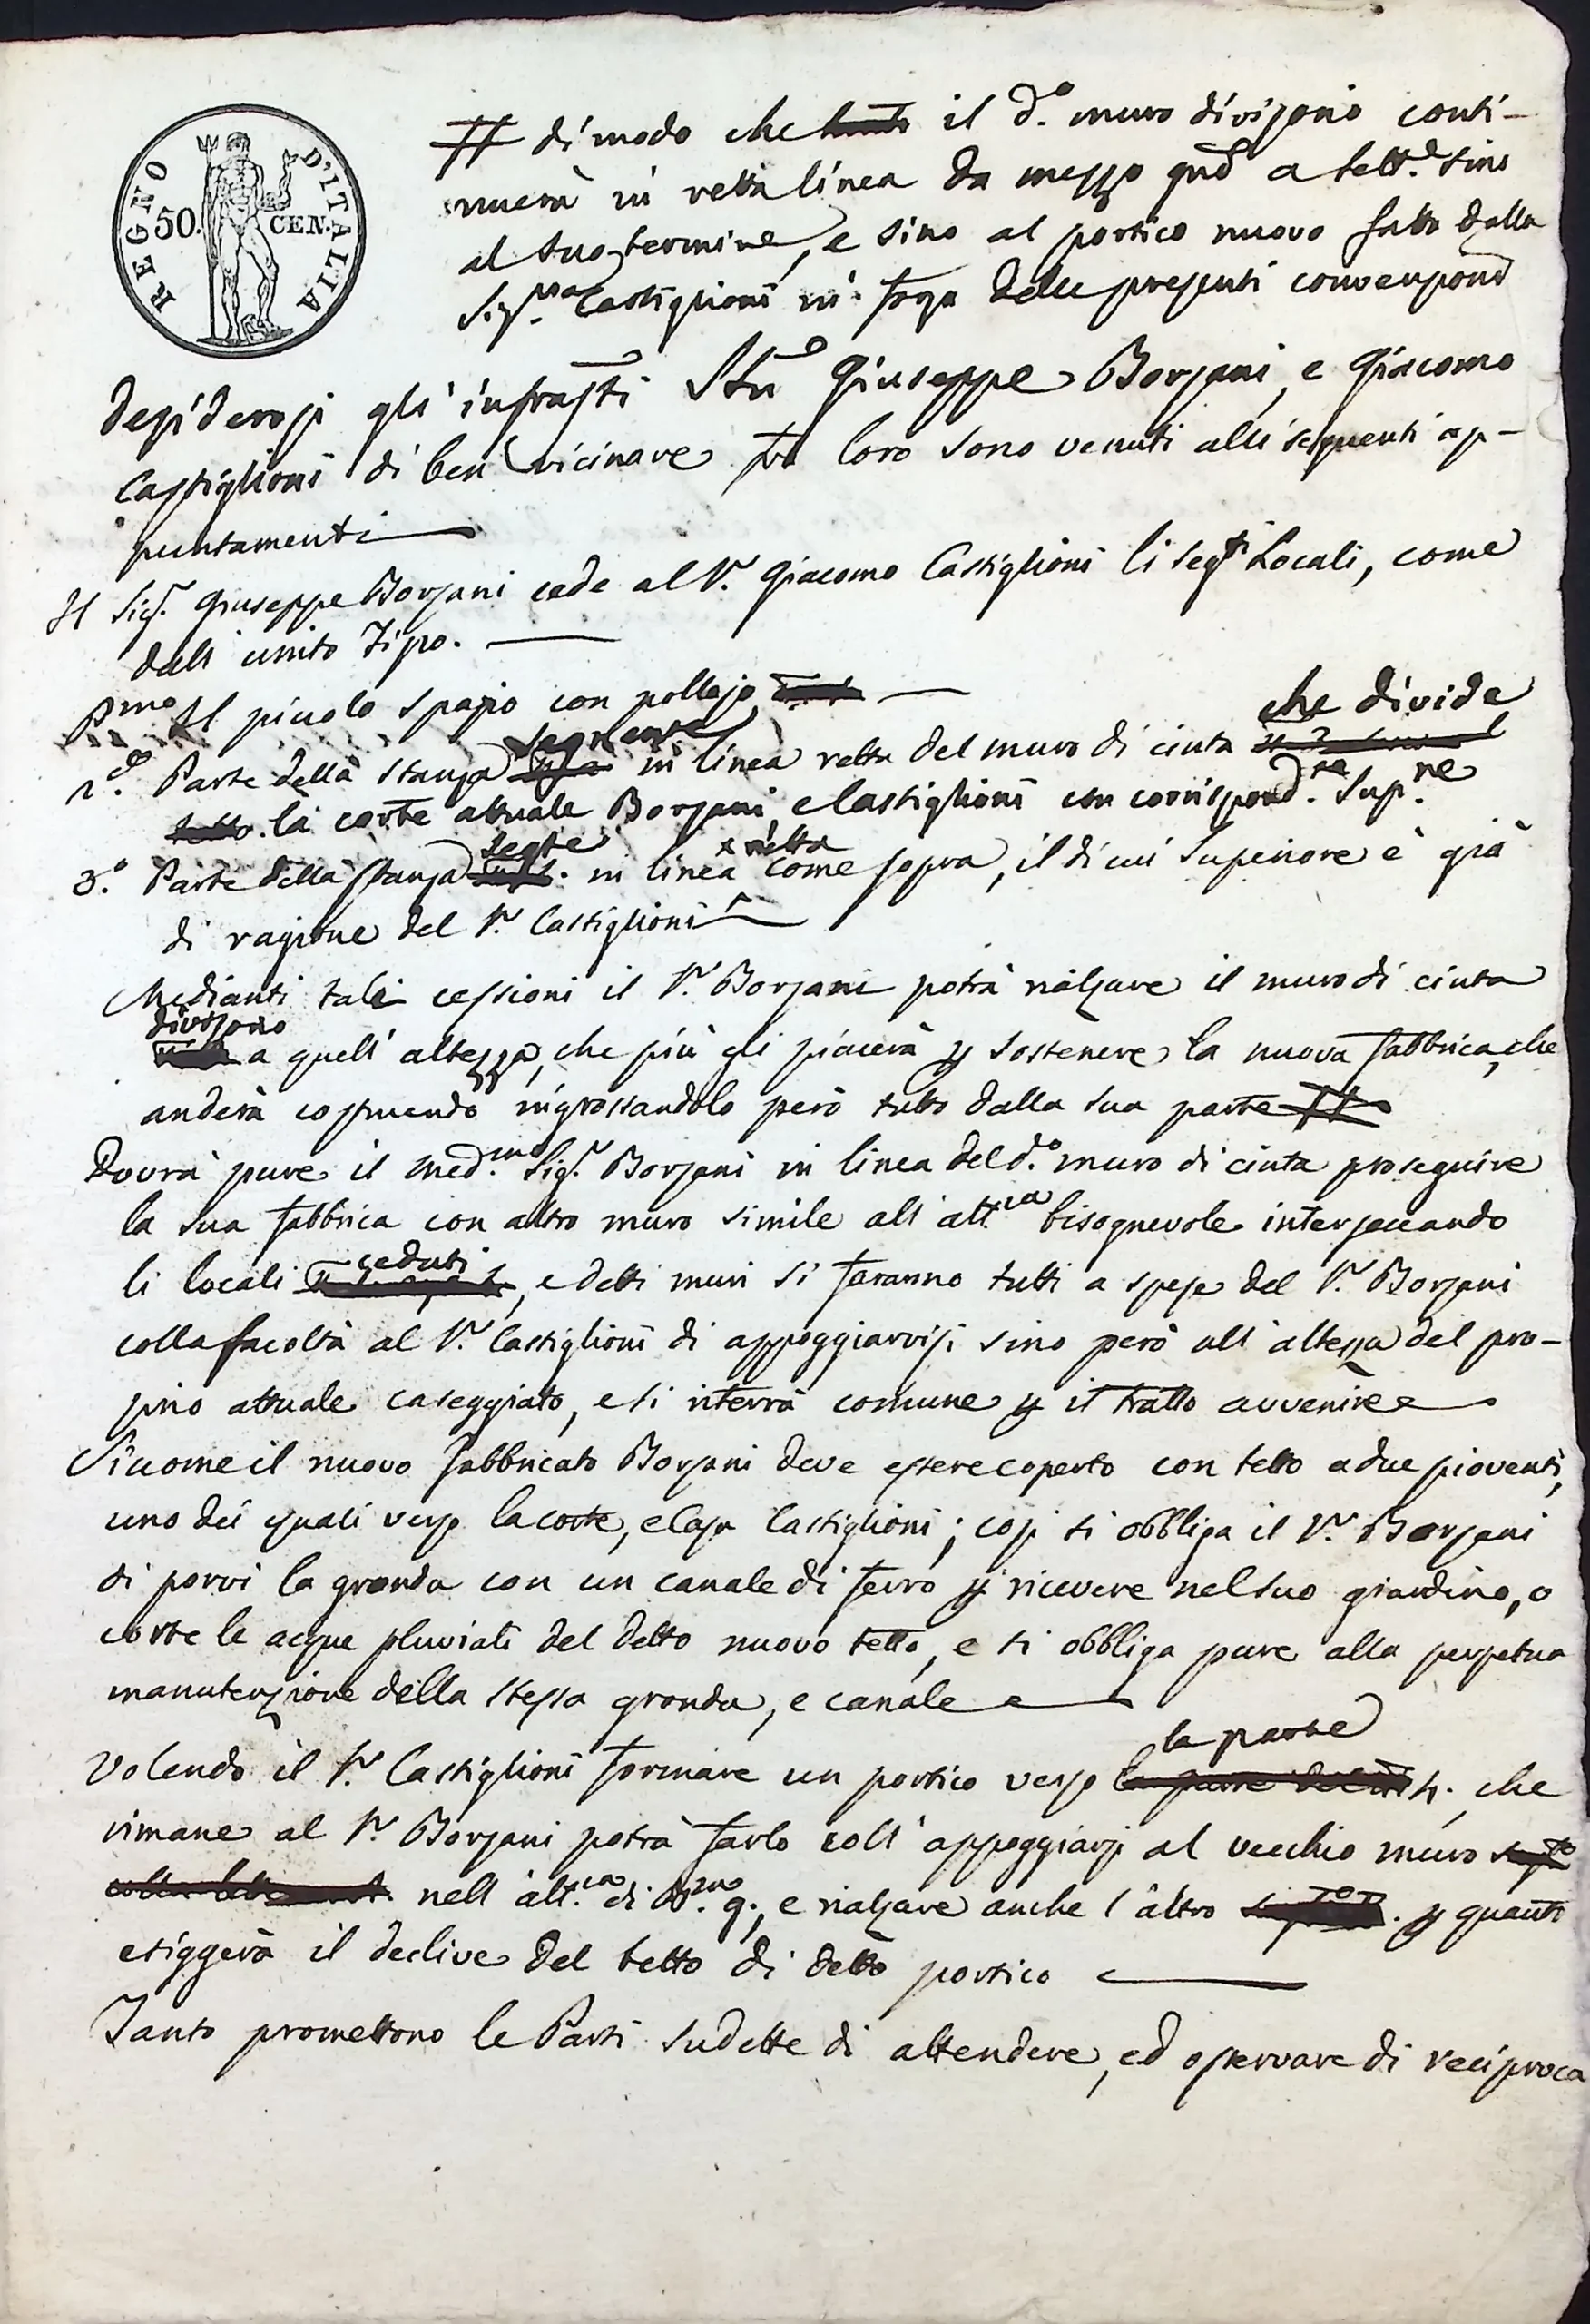 REGNO D'ITALIA
50. CEN.
# di modo che il d.o muro divisorio conti-
nuerà in retta linea da mezzo gnō a sett.e sino
al suo termine, e sino al portico nuovo fatto dalla
Castiglioni in forza delle presenti convenzioni
Desiderosi gli infrascti SSri Giuseppe Borzani, e Giacomo
Castiglioni di ben vicinare fra loro sono venuti alli seguenti ap-
puntamenti
Il Sig.r Giuseppe Borzani cede al S.r Giacomo Castiglioni li segti Locali, come
dall' unito Tipo.
Pmo Il piccolo spazio con pollajo
che divide
segnente
2.do Parte della stanza in linea retta del muro di cinta
la corte attuale Borzani, e Castiglioni con corrispond.te Sup.re
segte retta
3.o Parte della stanza in linea come sopra, il di cui Superiore è già
di ragione del S.r Castiglioni
Medianti tali cessioni il S.r Borzani potrà rialzare il muro di cinta
divisorio
a quell' altezza, che più gli piacerà p sostenere la nuova fabbrica, che
anderà costruendo ingrossandolo però tutto dalla sua parte #
Dovrà pure il med.mo Sig.r Borzani in linea del d.o muro di cinta proseguire
la sua fabbrica con altro muro simile all' alt.za bisognevole intersecando
ceduti
li locali , e detti muri si faranno tutti a spese del S.r Borzani
colla facoltà al S.r Castiglioni di appoggiarvisi sino però all' altezza del pro-
prio attuale caseggiato, e si riterrà comune p il tratto avvenire
Siccome il nuovo fabbricato Borzani deve essere coperto con tetto a due pioventi,
uno dei quali verso la corte, e Casa Castiglioni; così si obbliga il S.r Borzani
di porvi la gronda con un canale di ferro p ricevere nel suo giardino, o
corte le acque pluviali del detto nuovo tetto, e si obbliga pure alla perpetua
manutenzione della stessa gronda, e canale
la parte
Volendo il S.r Castiglioni formare un portico verso che
rimane al S.r Borzani potrà farlo coll' appoggiarsi al vecchio muro
nell' alt.za di , e rialzare anche l' altro p quanto
esiggerà il declive del tetto di detto portico
Tanto promettono le Parti sudette di attendere, ed osservare di reciproca